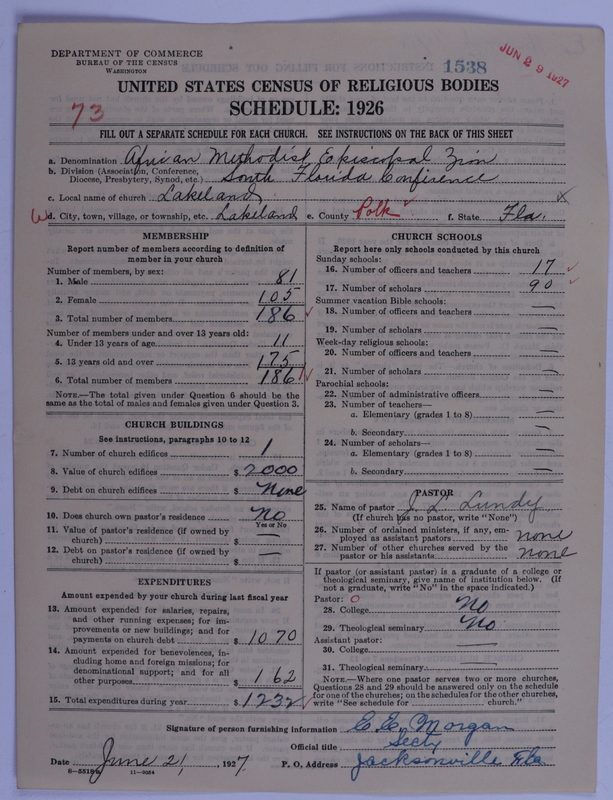 DEPARTMENT OF COMMERCE
BUREAU OF THE CENSUS
WASHINGTON
1538
JUN 29 1927
UNITED STATES CENSUS OF RELIGIOUS BODIES
73
SCHEDULE: 1926
FILL OUT A SEPARATE SCHEDULE FOR EACH CHURCH. SEE INSTRUCTIONS ON THE BACK OF THIS SHEET
a. Denomination African Methodist Episcopal Zion
b. Division (Association, Conference, Diocese, Presbytery, Synod, etc.) South Florida Conference
c. Local name of church Lakeland x
d. City, town, village, or township, etc. Lakeland e. County Polk f. State Fla.
MEMBERSHIP
Report number of members according to definition of
member in your church
Number of members, by sex:
1. Male 81
2. Female 105
3. Total number of members 186
Number of members under and over 13 years old:
4. Under 13 years of age 11
5. 13 years old and over 175
6. Total number of members 186
NOTE.—The total given under Question 6 should be
same as the total of males and females given under Question 3.
CHURCH BUILDINGS
See instructions, paragraphs 10 to 12
7. Number of church edifices 1
8. Value of church edifices $ 2000
9. Debt on church edifices $ None
10. Does church own pastor's residence No
Yes or No
11. Value of pastor's residence (if owned by
church) $ —
12. Debt on pastor's residence (if owned by
church) $ —
EXPENDITURES
Amount expended by your church during last fiscal year
13. Amount expended for salaries, repairs,
and other running expenses; for im-
provements or new buildings; and for
payments on church debt $ 1070
14. Amount expended for benevolences, in-
cluding home and foreign missions; for
denominational support; and for all
other purposes $ 162
15. Total expenditures during year $ 1232
CHURCH SCHOOLS
Report here only schools conducted by this church
Sunday schools:
16. Number of officers and teachers 17
17. Number of scholars 90
Summer vacation Bible schools:
18. Number of officers and teachers —
19. Number of scholars —
Week-day religious schools:
20. Number of officers and teachers —
21. Number of scholars —
Parochial schools:
22. Number of administrative officers —
23. Number of teachers—
a. Elementary (grades 1 to 8) —
b. Secondary —
24. Number of scholars—
a. Elementary (grades 1 to 8) —
b. Secondary —
PASTOR
25. Name of pastor J. L. Lundy
(If church has no pastor, write "None")
26. Number of ordained ministers, if any, em-
ployed as assistant pastors none
27. Number of other churches served by the
pastor or his assistants none
If pastor (or assistant pastor) is a graduate of a college or
theological seminary, give name of institution below. (If
not a graduate, write "No" in the space indicated.)
Pastor: 0
28. College No
29. Theological seminary No
Assistant pastor:
30. College —
31. Theological seminary —
NOTE.—Where one pastor serves two or more churches,
Questions 28 and 29 should be answered only on the schedule
for one of the churches; on the schedules for the other churches,
write "See schedule for church."
Signature of person furnishing information E. E. Morgan
Official title Secty
Date June 21, 1927. P. O. Address Jacksonville Fla
11—9264